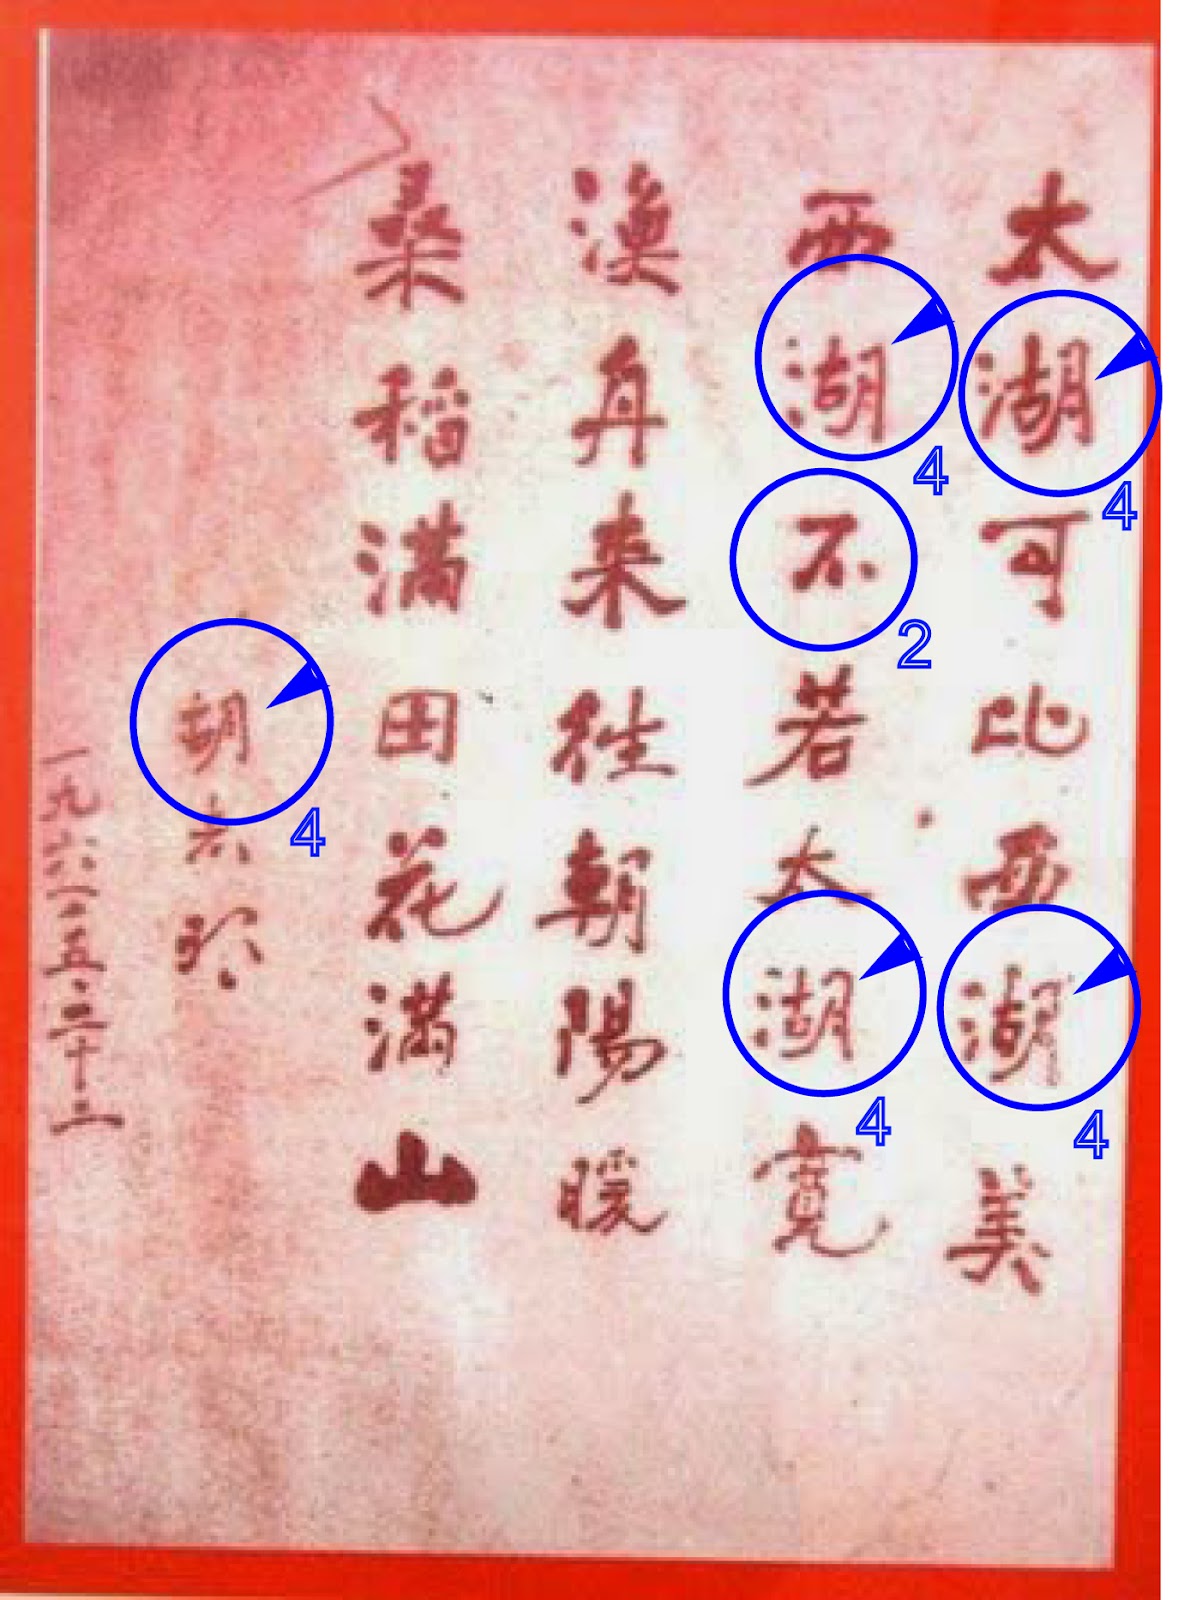 太湖可比西湖美
西湖不若太湖寬
漁舟来徃朝陽暖
桑稻滿田花滿山
胡
一九六一·五·二十二
4
4
4
2
4
4